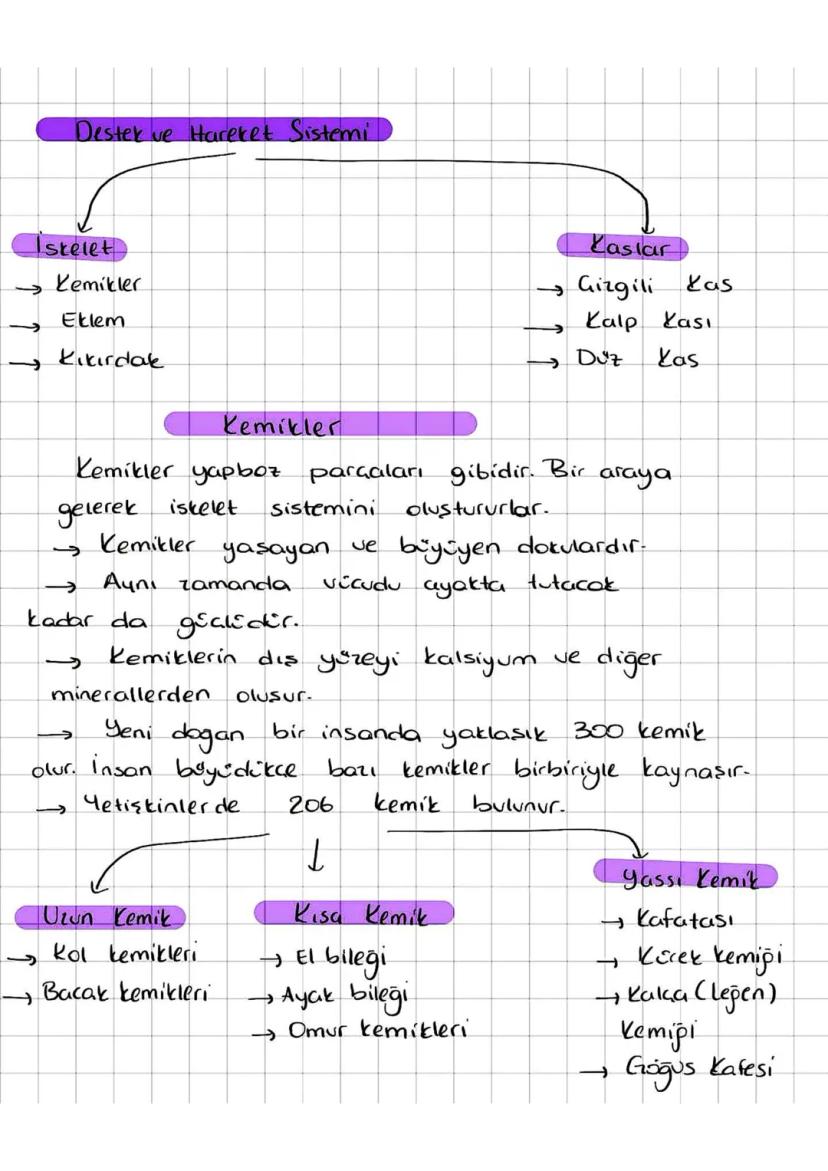 Destek ve Hareket Sistemi
İskelet
→ Kemikler
→ Eklem
→ Kıkırdak
Kaslar
→ Çizgili Kas
→ Kalp Kası
→ Düz Kas
Kemikler
Kemikler yapboz parçaları gibidir. Bir araya
gelerek iskelet sistemini oluştururlar.
→ Kemikler yaşayan ve büyüyen dokulardır.
→ Aynı zamanda vücudu ayakta tutacak
kadar da güçlüdür.
→ Kemiklerin dış yüzeyi kalsiyum ve diğer
minerallerden oluşur.
→ Yeni doğan bir insanda yaklaşık 300 kemik
olur. İnsan büyüdükçe bazı kemikler birbiriyle kaynaşır.
→ Yetişkinlerde 206 kemik bulunur.
Uzun Kemik
→ Kol kemikleri
→ Bacak kemikleri
Kısa Kemik
→ El bileği
→ Ayak bileği
→ Omur kemikleri
Yassı Kemik
→ Kafatası
→ Kürek kemiği
→ Kalça (leğen)
kemiği
→ Göğüs Kafesi